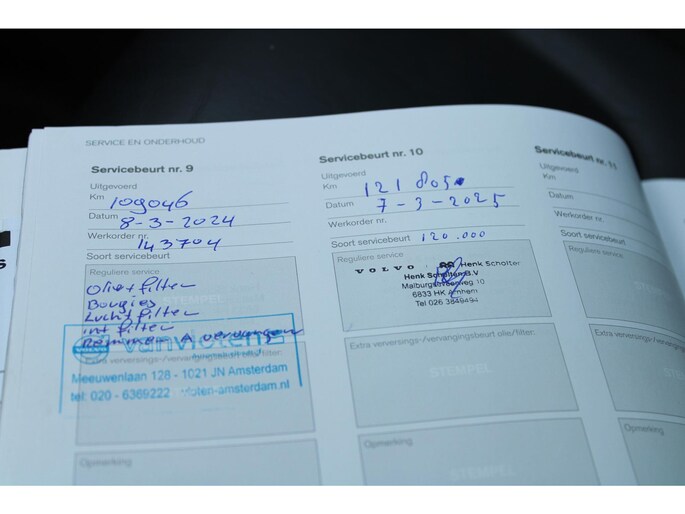 SERVICE EN ONDERHOUD
Servicebeurt nr. 9
Uitgevoerd
Km 109046
Datum 8-3-2024
Werkorder nr. 143704
Reguliere service
Olie+filter
Bougies
Luchtfilter
int filter
vervangen
STEMPEL
Extra verversings-/vervangingsbeurt olie/filter:
Meeuwenlaan 128 - 1021 JN Amsterdam
tel: 020 - 6369222
oten-amsterdam.nl
Opmerking
Servicebeurt nr. 10
Uitgevoerd
Km 121805
Datum 7-3-2025
Werkorder nr.
Soort servicebeurt 120.000
Reguliere service
VOLVO Henk Scholten
Henk Scholten B.V
6833 HK Arnhem
Tel 026 3849494
Extra verversings-/vervangingsbeurt olie/filter:
STEMPEL
Opmerking
STEMPEL
Servicebeurt nr. 11
Uitgevoerd
Km
Datum
Werkorder nr.
Soort servicebeurt
Reguliere service
Extra verversings-
Opmerking